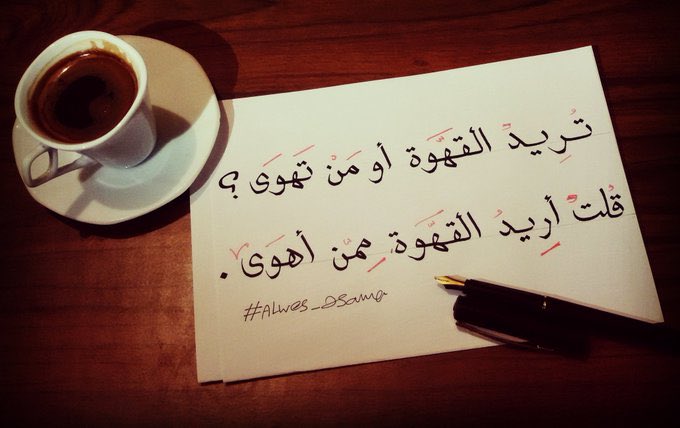 تُرِيدُ القَهَّوَة أو مَنْ تَهوَى ؟
قُلتُ أرِيدُ القَهَّوَة مِمّن أهوَى .
#ALWES_OSAMA